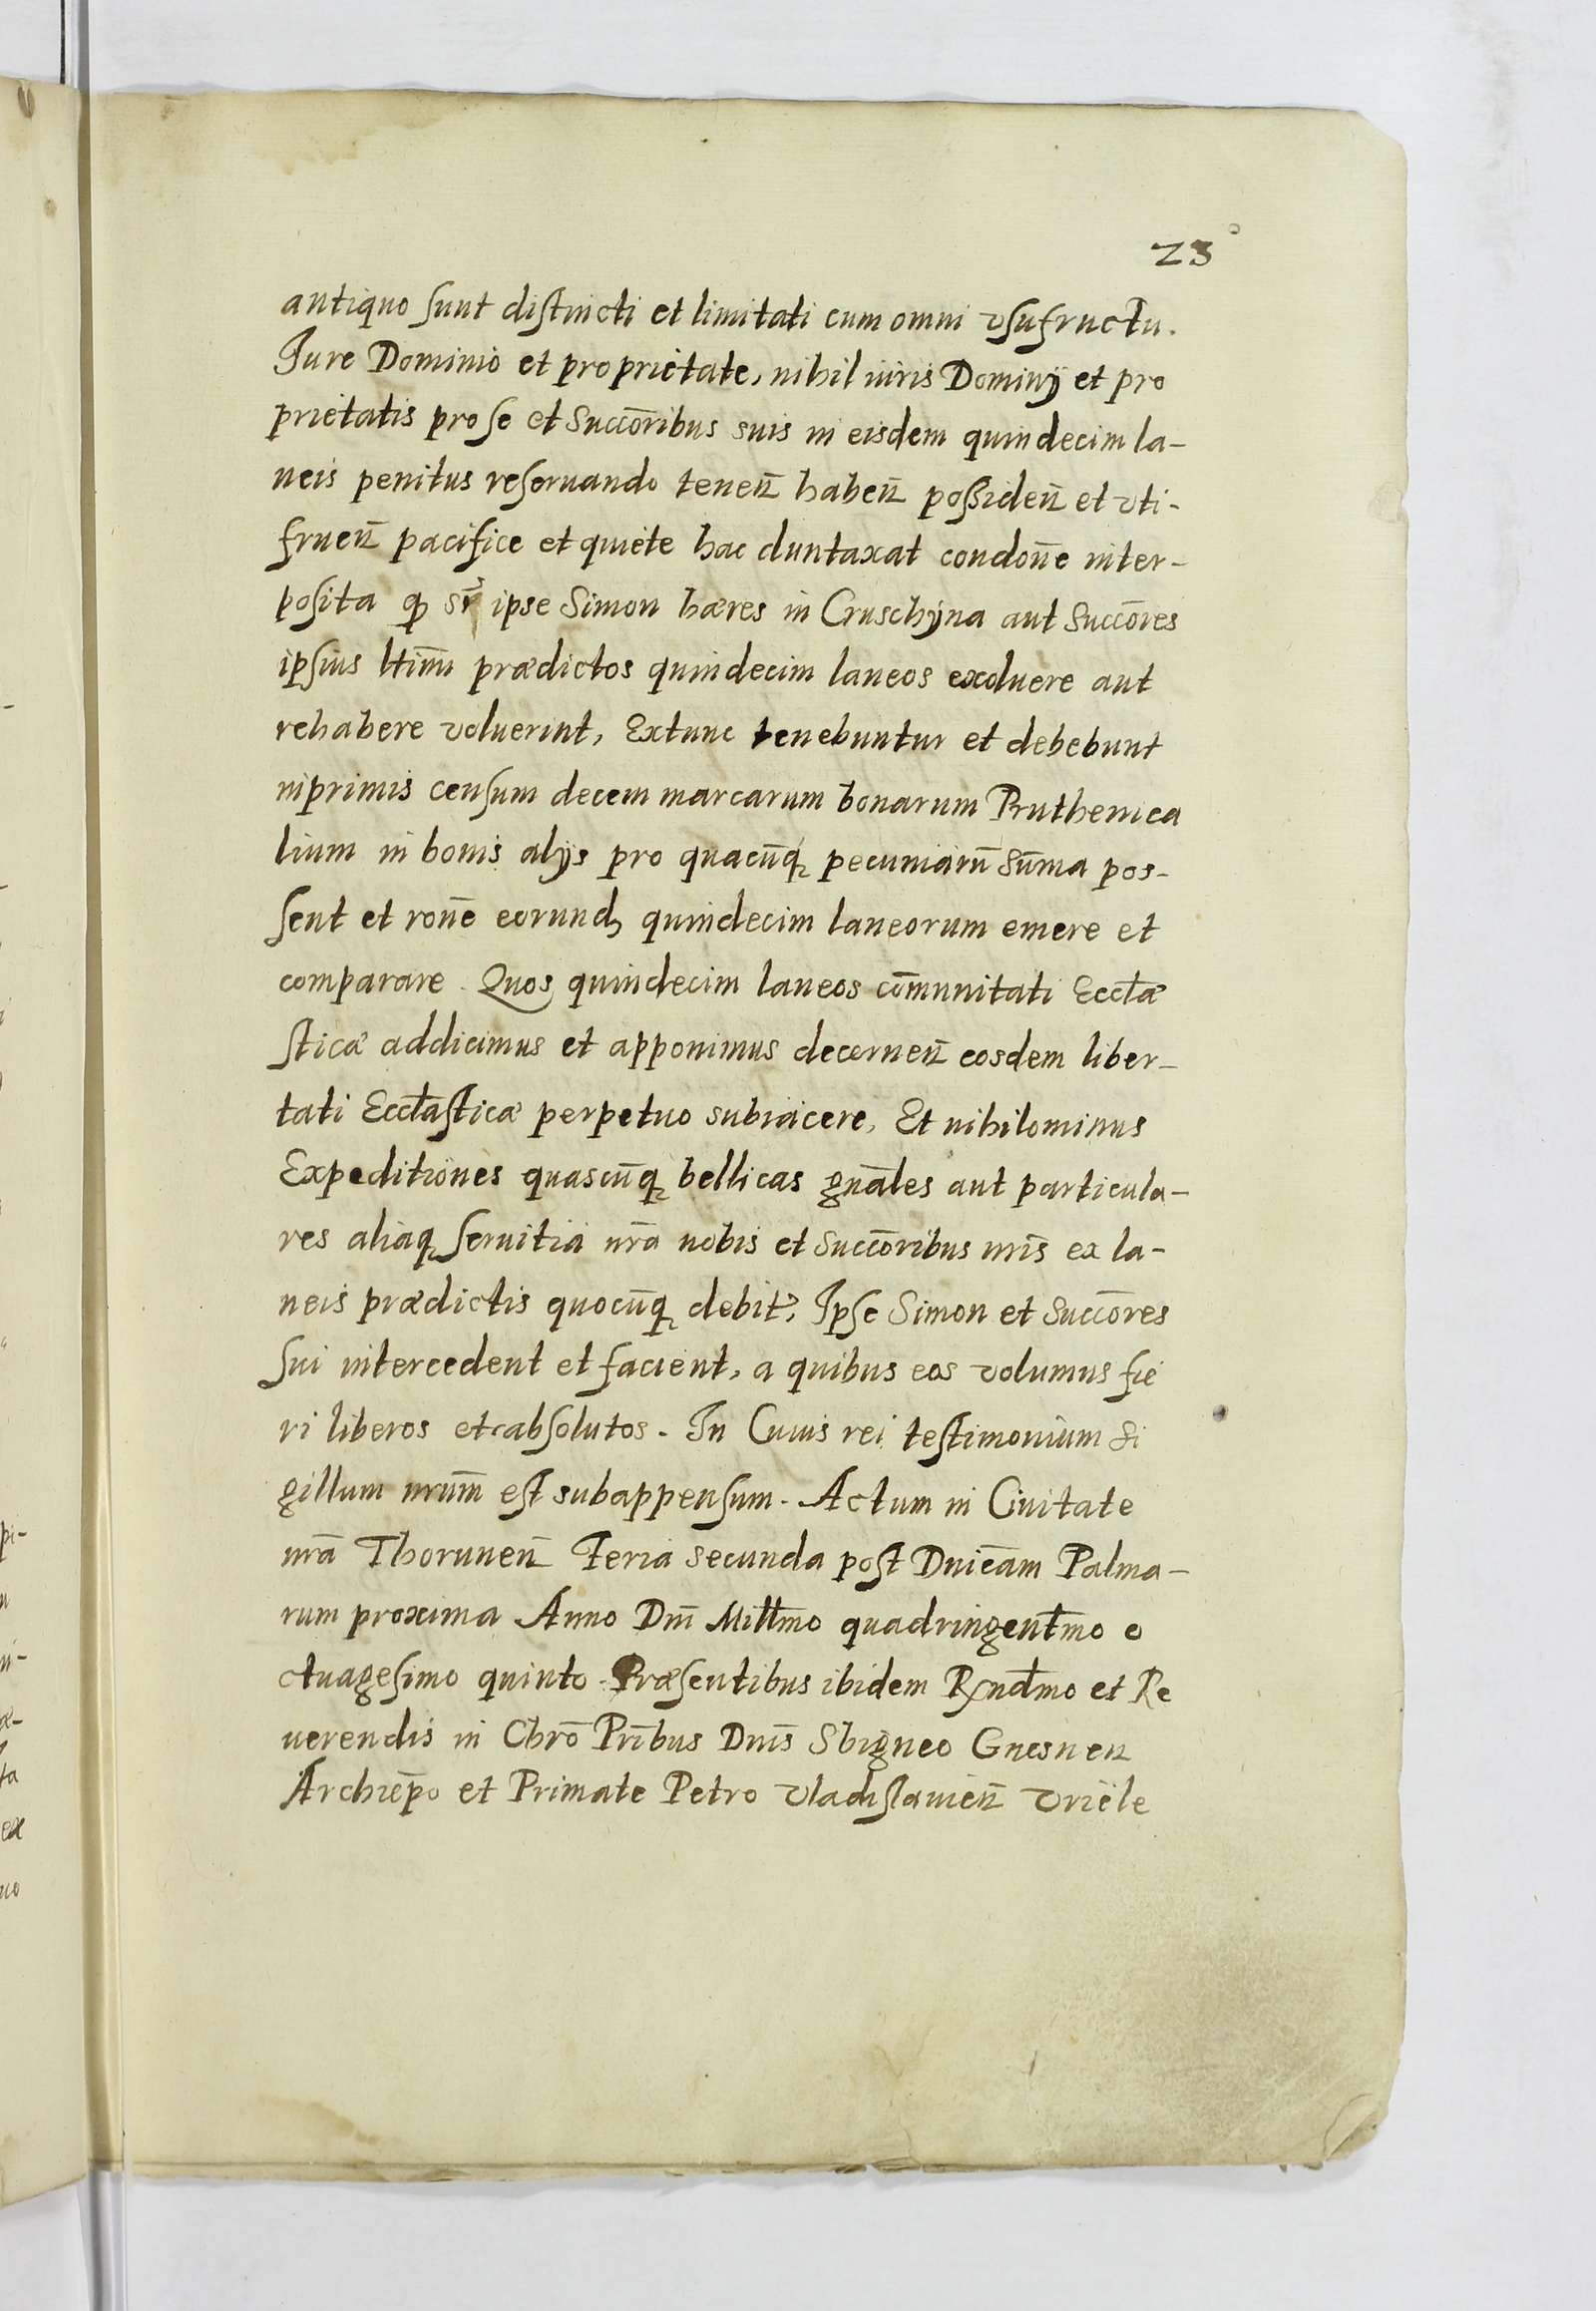 23
antiquo sunt distincti et limitati cum omni vsufructu.
Jure Dominio et proprietate, nihil iuris Dominÿ et pro
prietatis pro se et Succōribus suis in eisdem quindecim la-
neis penitus reseruando tenen̄ haben̄ possiden̄ et vti-
fruen̄ pacifice et quiete hac duntaxat condōne inter-
posita ꝙ ipse Simon hæres in Cruschÿna aut Succōres
ipsius prædictos quindecim laneos exoluere aut
rehabere voluerint, Extunc tenebuntur et debebunt
inprimis censum decem marcarum bonarum Pruthenica
lium in bonis alÿs pro quacūq₃ pecuniarū Sūma pos-
sent et rōne eorund₃ quindecim laneorum emere et
comparare. Quos quindecim laneos cōmunitati Eccłæ
sticæ addicimus et apponimus decernen̄ eosdem liber-
tati Eccłasticæ perpetuo subiacere, Et nihilominus
Expeditiones quascūq₃ bellicas gnāles aut particula-
res aliaq₃ seruitia nrā nobis et Succōribus nrīs ex la-
neis prædictis quocūq₃ debit̄, Ipse Simon et Succōres
sui intercedent et facient, a quibus eos volumus fie
ri liberos et absolutos. In Cuius rei testimonium Si
gillum nrūm est subappensum. Actum in Ciuitate
nrā Thorunen̄ Feria secunda post Dnicām Palma-
rum proxima Anno Dnī Miłłmo quadringentmo o
ctuagesimo quinto. Præsentibus ibidem Rndmo et Re
uerendis in Chrō Prībus Dnīs Sbigneo Gnesnen
Archiep̄o et Primate Petro Vladislauien̄ Vriële